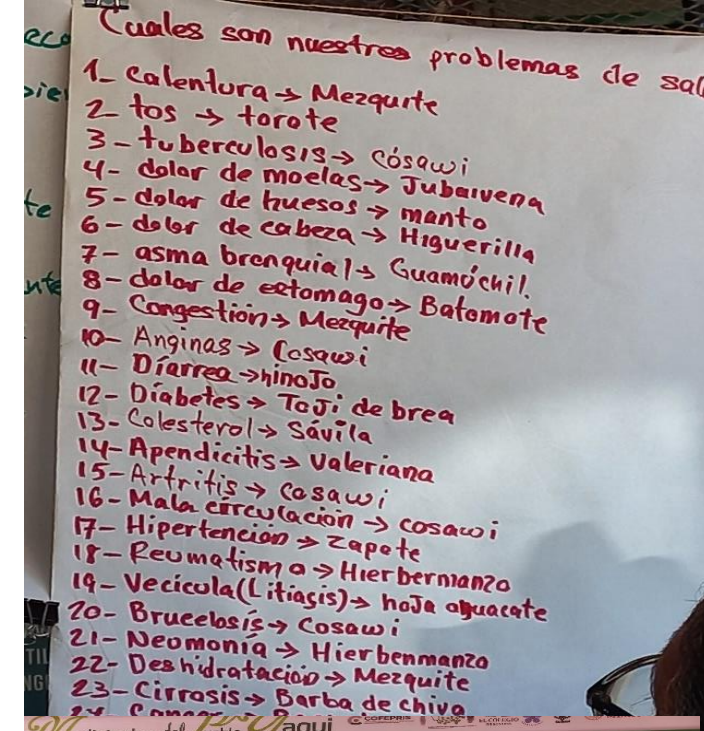 Cuales son nuestros problemas de sal
1- Calentura → Mezquite
2- tos → torote
3- tuberculosis → cósawi
4- dolor de moelas → Jubaivena
5- dolor de huesos → manto
6- dolor de cabeza → Higuerilla
7- asma bronquial → Guamúchil.
8- dolor de estomago → Batomote
9- Congestión → Mezquite
10- Anginas → Cosawi
11- Díarrea → hinoJo
12- Díabetes → ToJi de brea
13- Colesterol → Sávila
14- Apendicitis → Valeriana
15- Artritis → Cosawi
16- Mala circulación → cosawi
17- Hipertención → Zapote
18- Reumatismo → Hierbermanzo
19- Vecícula (Litiasis) → hoJa aguacate
20- Brucelosis → Cosawi
21- Neomonía → Hierbenmanzo
22- Deshidratación → Mezquite
23- Cirrosis → Barba de chiva
24
eco
te
TIL
NG
COFEPRIS
aqui